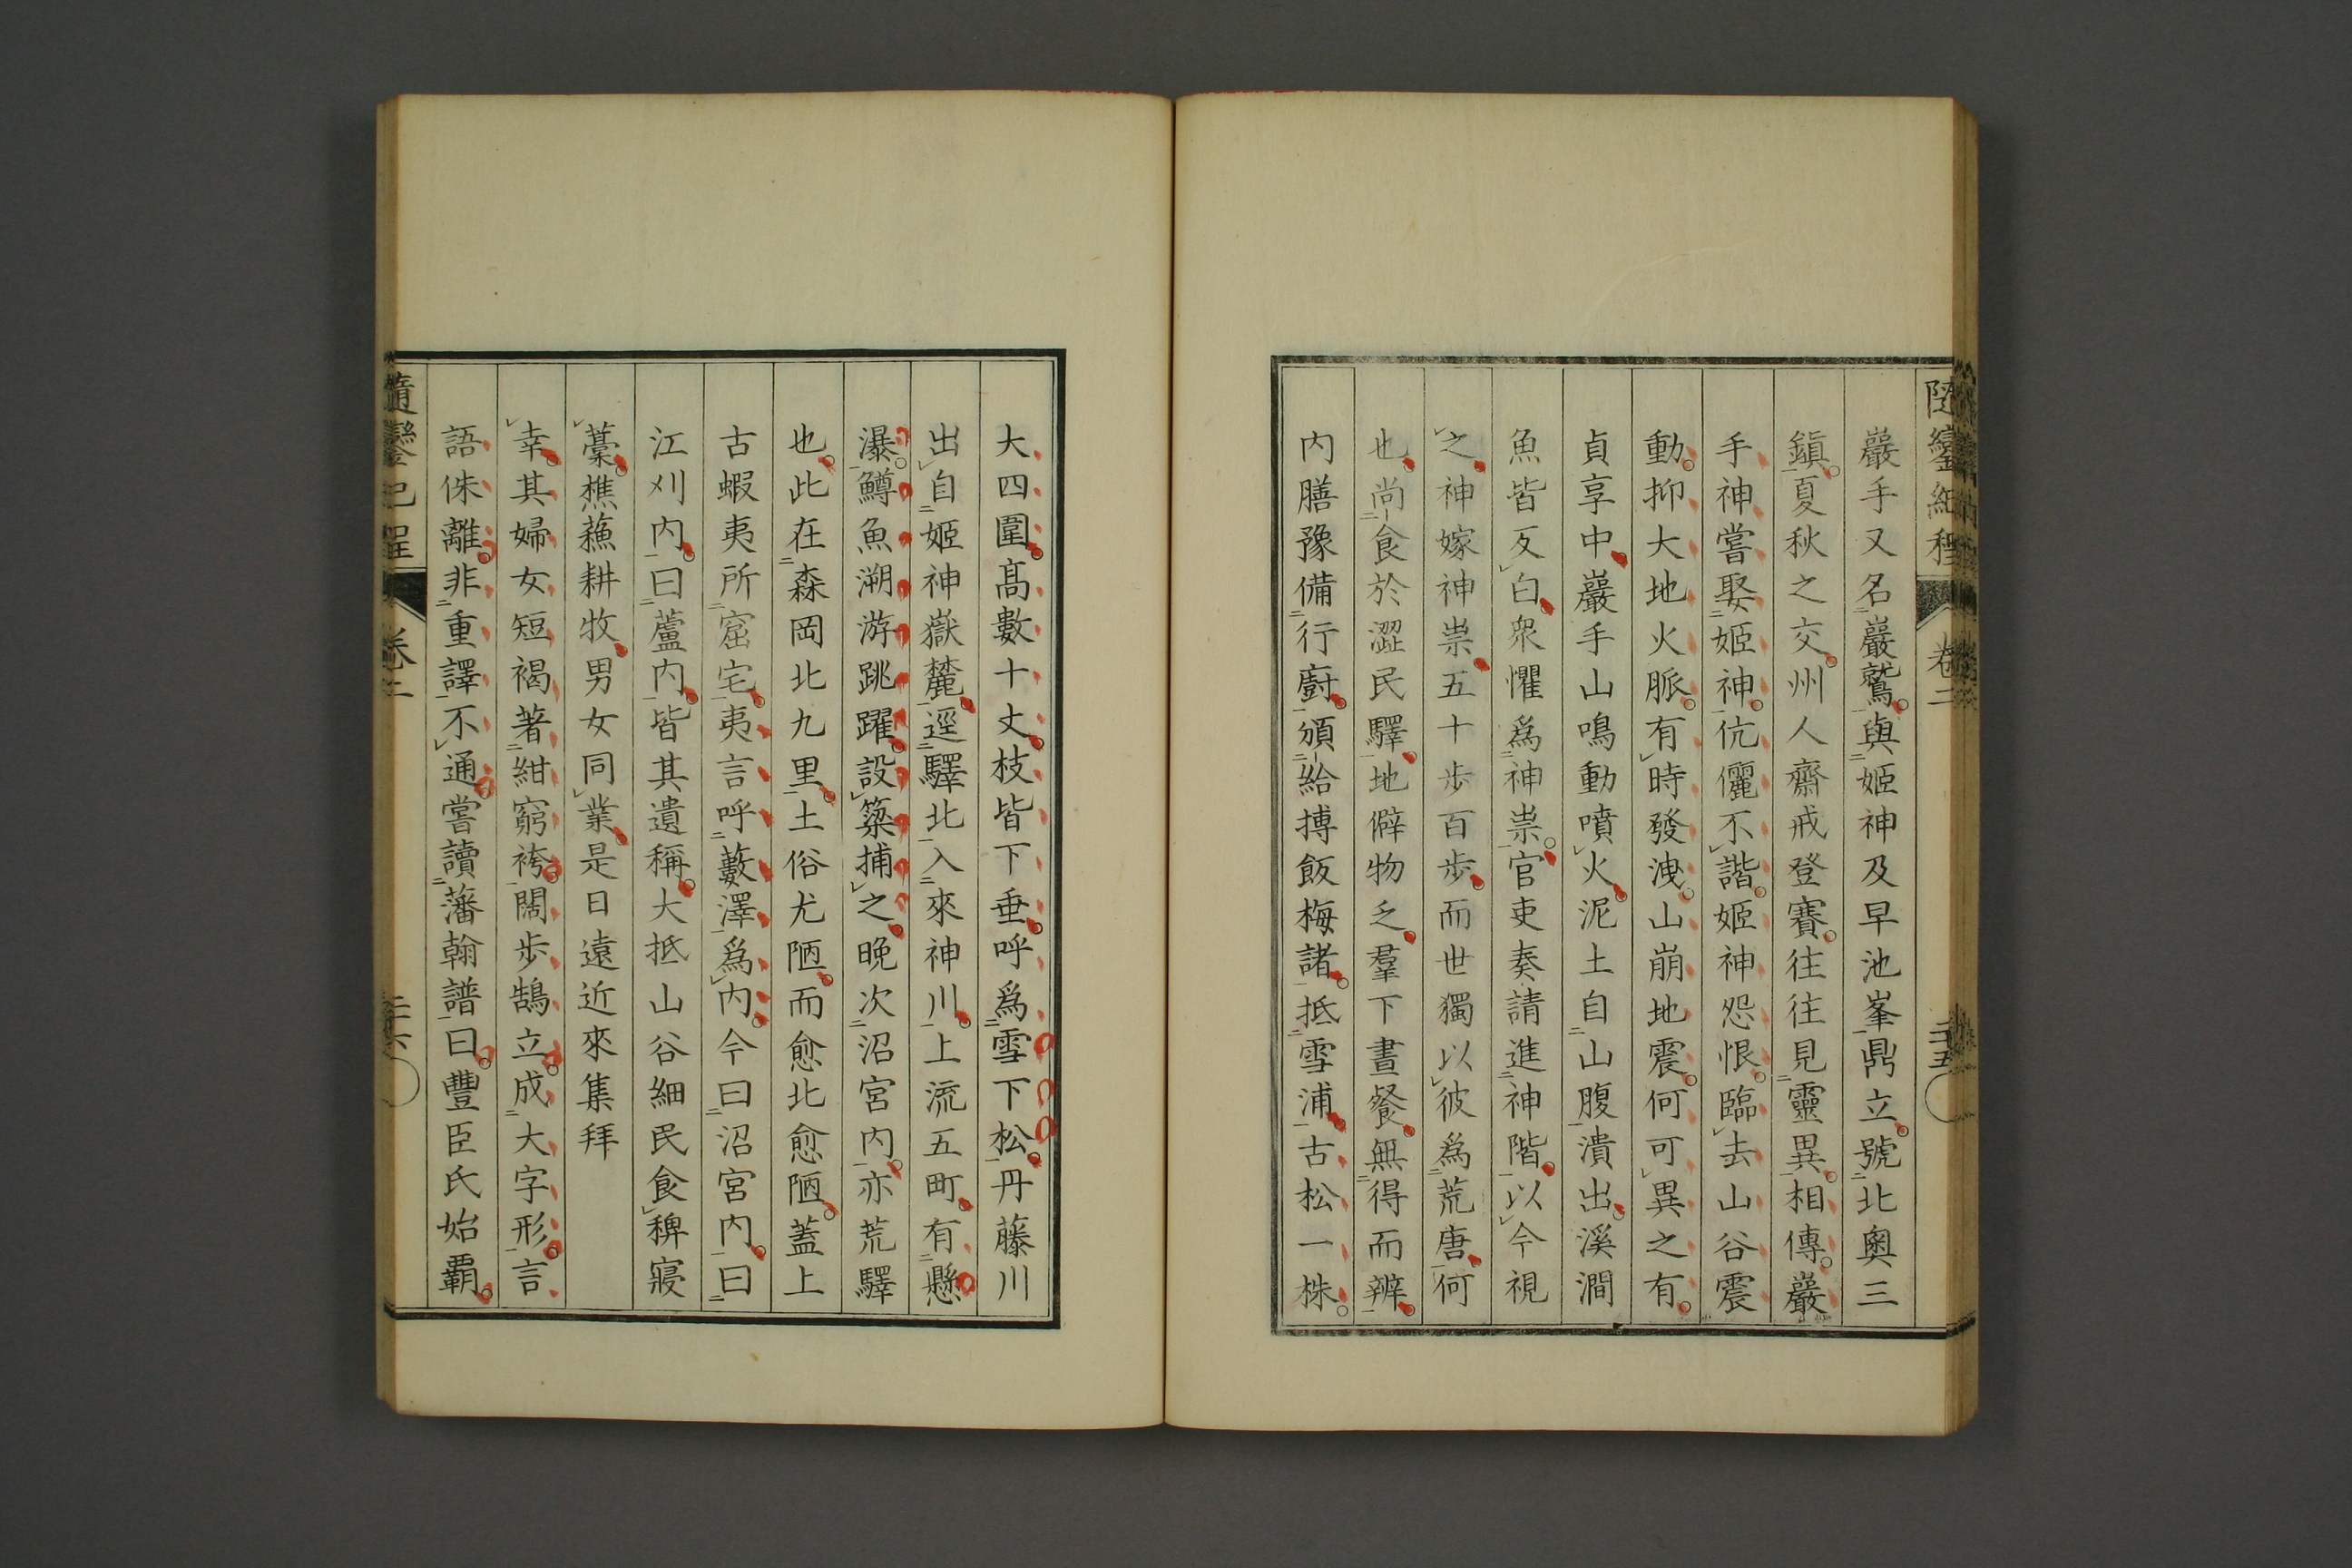 隨鑾紀程 卷二 二十五
巖手又名巖鷲與姬神及早池峯鼎立號北奧三
鎭夏秋之交州人齋戒登賽往往見靈異相傳巖
手神嘗娶姬神伉儷不諧姬神怨恨臨去山谷震
動抑大地火脈有時發洩山崩地震何可異之有
貞享中巖手山鳴動噴火泥土自山腹潰出溪澗
魚皆反白衆懼爲神祟官吏奏請進神階以今視
之神嫁神祟五十步百步而世獨以彼爲荒唐何
也尚食於澀民驛地僻物乏羣下晝餐無得而辨
内膳豫備行廚頒給摶飯梅諸抵雪浦古松一株
大四圍高數十丈枝皆下垂呼爲雪下松丹藤川
出自姬神嶽麓逕驛北入來神川上流五町有懸
瀑鱒魚溯游跳躍設簗捕之晚次沼宮内亦荒驛
也此在森岡北九里土俗尤陋而愈北愈陋蓋上
古蝦夷所窟宅夷言呼藪澤爲内今曰沼宮内曰
江刈内曰蘆内皆其遺稱大抵山谷細民食稗寢
藁樵蘓耕牧男女同業是日遠近來集拜
幸其婦女短褐著紺窮袴闊步鵠立成大字形言
語侏離非重譯不通嘗讀藩翰譜曰豐臣氏始覇
隨鑾紀程 卷二 二十六